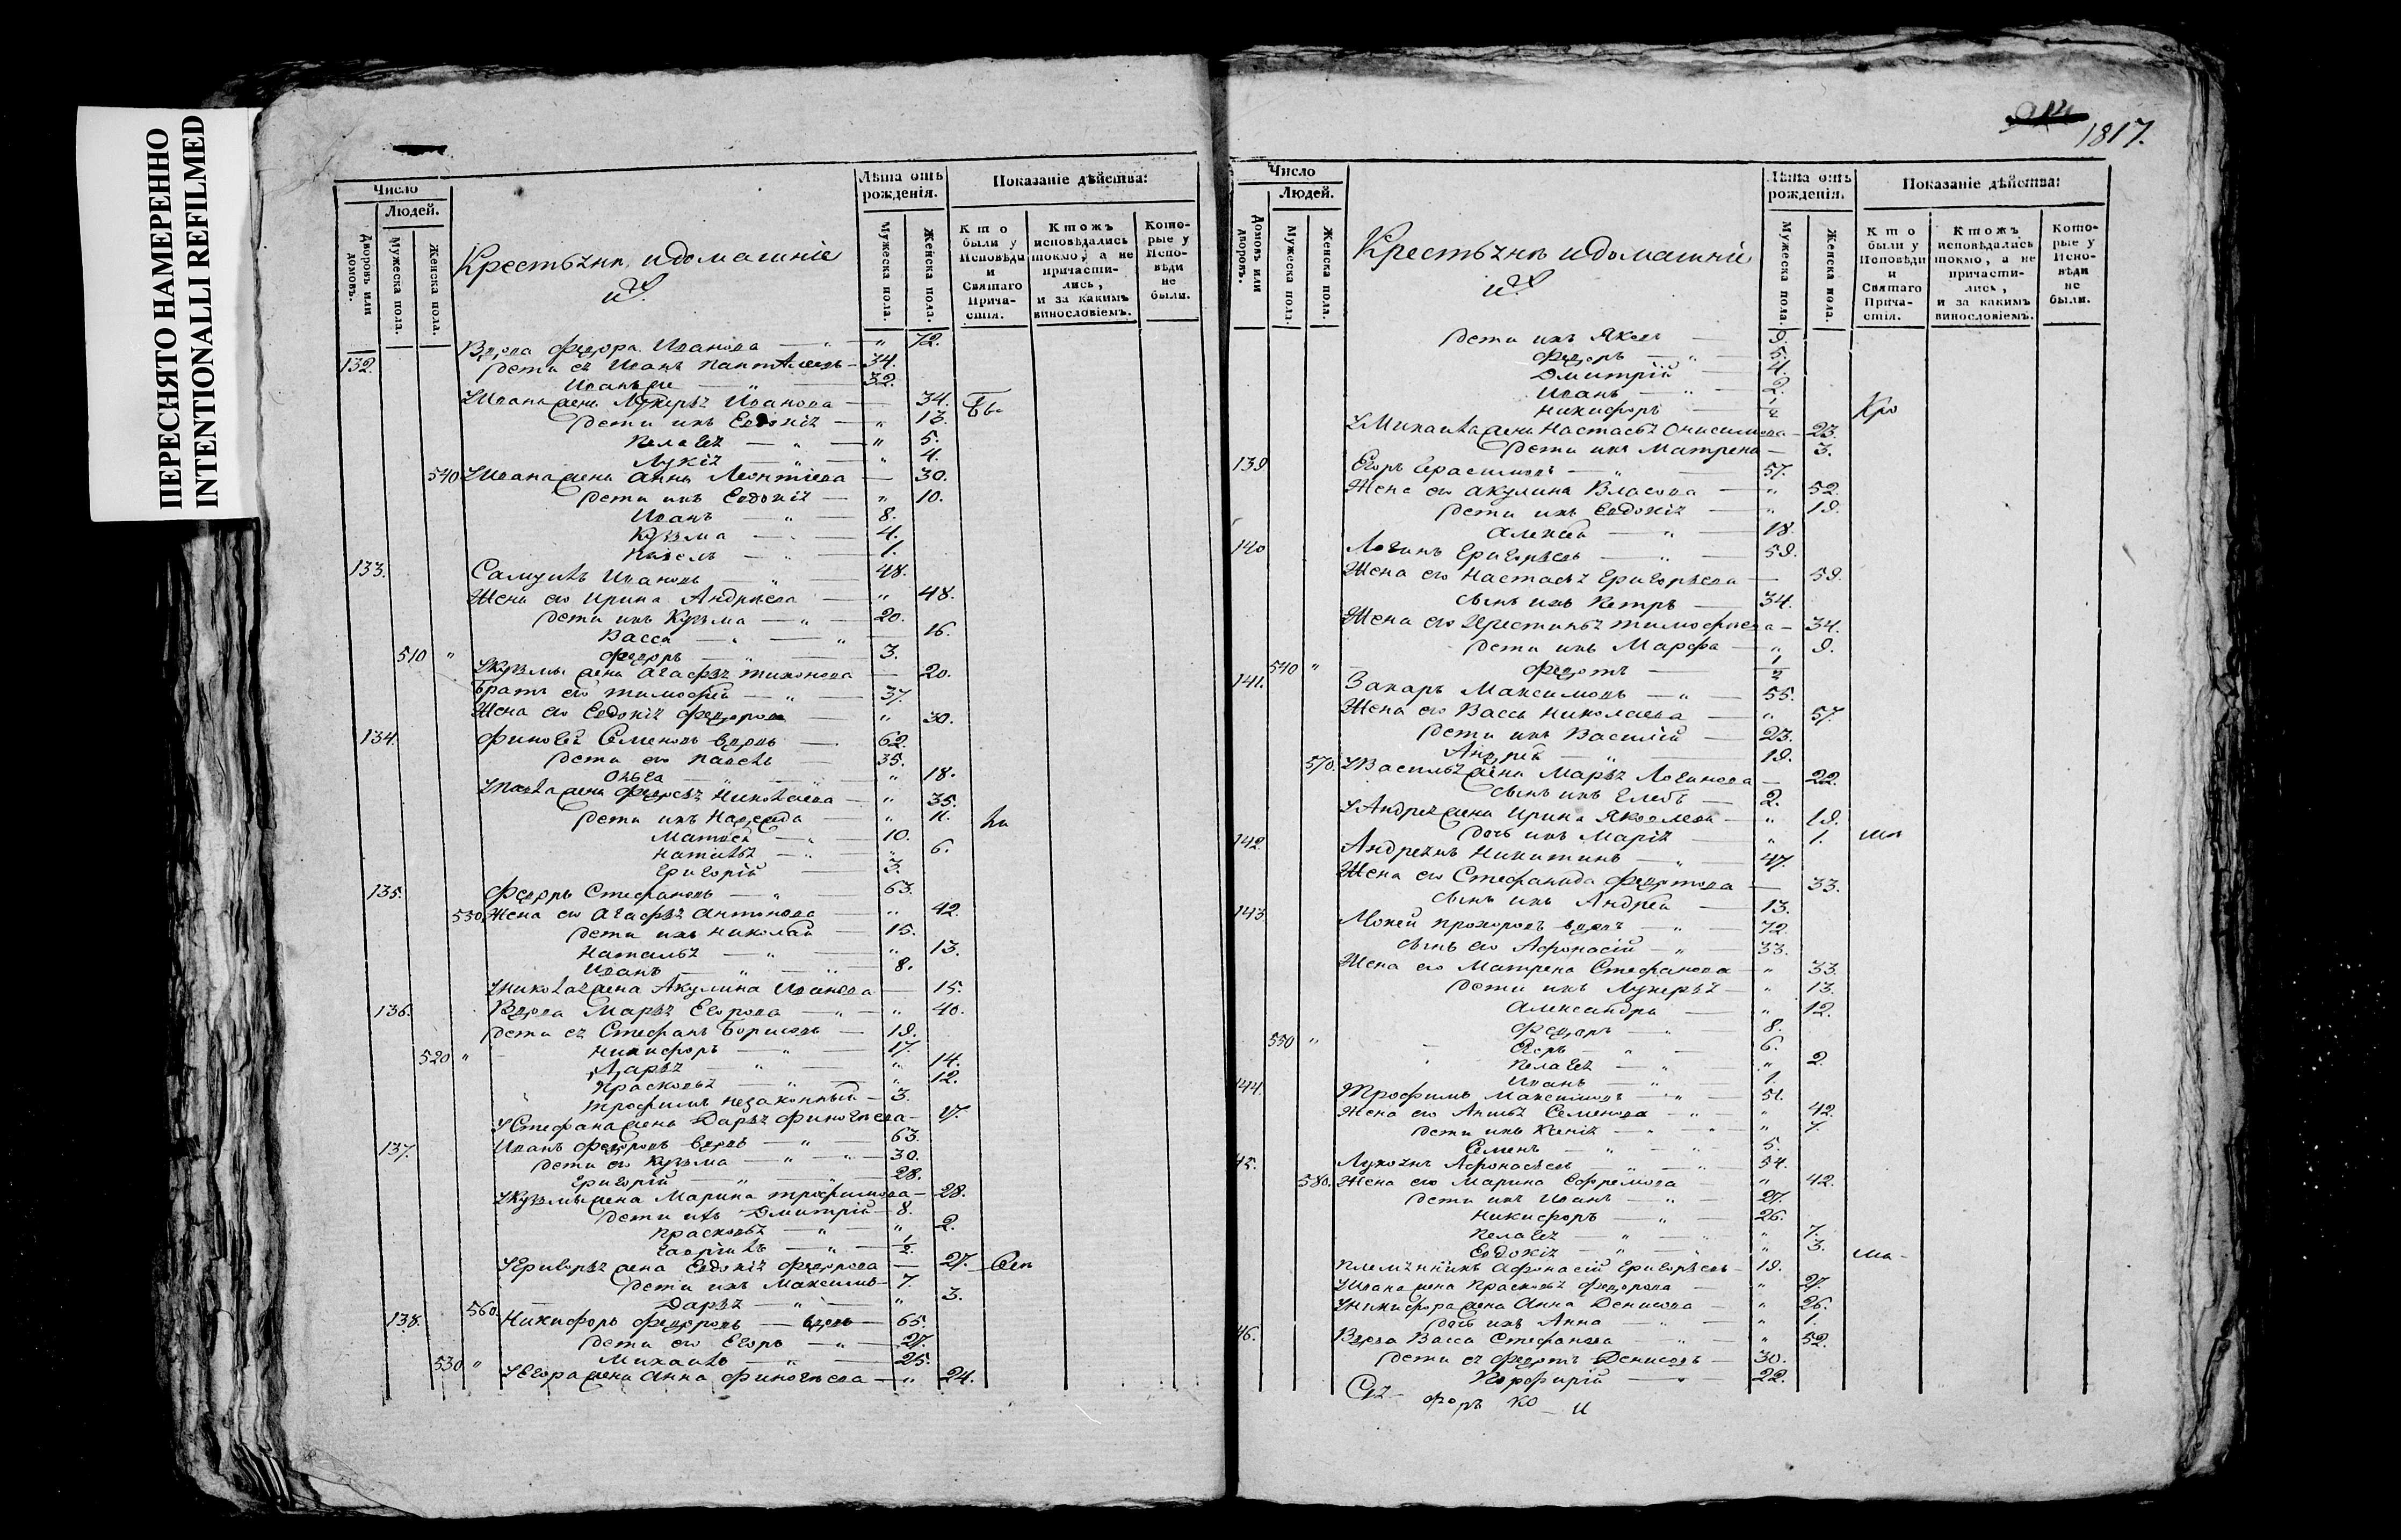 ПЕРЕСНЯТО НАМЕРЕННО
INTENTIONALLI REFILMED
Число
Людей.
Дворовъ или домовъ.
Мужеска пола.
Женска пола.
Крестьяня и домашніе
ихъ
Лѣта отъ рожденія.
Мужеска пола.
Женска пола.
Показаніе дѣйства:
Кто были у Исповѣди и Святаго Прича-стія.
Ктожъ исповѣдались токмо, а не причасти-лись, и за какимъ винословіемъ.
Кото-рые у Испо-вѣди не были.
132. Вдова Федора Иванова — " 72.
Дети ея Иванъ Пантелеевъ — 34.
Иванъ же — 32.
У Ивана жена Лукерья Иванова — 34. Бы
Дети ихъ Евдокія — " 13.
Пелагея — " 5.
Лукія — " 4.
540 У Ивана жена Анна Леонтіева — 30.
Дети ихъ Евдокія — " 10.
Иванъ — 8.
Кузма — 4.
Павелъ — 1.
133. Самуилъ Ивановъ — 48.
Жена ево Ирина Андреева — " 48.
Дети ихъ Кузьма — 20.
Васса — 16.
510 " Федоръ — 3.
У Кузмы жена Агафья Тихонова — 20.
Братъ ево Тимофей — 37.
Жена ево Евдокія Федорова — " 30.
134. Финогей Семеновъ вдовъ — 62.
Дети ево Павелъ — 35.
Ольга — " 18.
У Павла жена Федосья Николаева — " 35.
Дети ихъ Надежда — " 11. ли
Матвей — 10.
Наталья — " 6.
Григорій — 3.
135. Федоръ Стефановъ — 63.
550 Жена ево Агафья Антонова — " 42.
Дети ихъ Николай — 15.
Наталья — " 13.
Иванъ — 8.
У Николая жена Акулина Иванова — 15.
136. Вдова Марья Егорова — " 40.
Дети ея Стефанъ Борисовъ — 19.
520 " Никифоръ — 17.
Дарья — " 14.
Прасковья — " 12.
Трофимъ незаконный — 3.
У Стефана жена Дарья Финогеева — 17.
137. Иванъ Федоровъ вдовъ — 63.
Дети ево Кузма — 30.
Григорій — 28.
У Кузмы жена Марина Трофимова — 28.
Дети ихъ Дмитрій — 8.
Прасковья — " 2.
Гавріилъ — 1/2.
У Григорья жена Евдокія Федорова — 27.
Дети ихъ Максимъ — 7
560. Дарья — " 3.
138. Никифоръ Федоровъ — вдовъ — 65.
Дети ево Егоръ — 27.
530 " Михаилъ — 25.
У Егора жена Анна Финогеева — " 24.
1817.
Число
Людей.
Домовъ или дворовъ.
Мужеска пола.
Женска пола.
Крестьяня и домашніе
ихъ
Лѣта отъ рожденія.
Мужеска пола.
Женска пола.
Показаніе дѣйства:
Кто были у Исповѣди и Святаго Прича-стія.
Ктожъ исповѣдались токмо, а не причасти-лись, и за какимъ винословіемъ.
Кото-рые у Испо-вѣди не были.
Дети ихъ Яковъ — 9.
Федоръ — 5.
Дмитрій — 4.
Иванъ — 2.
Никифоръ — 1/2
У Михаила жена Настасья Онисимова — 23.
Дети ихъ Матрена — 3.
139 Егоръ Герасимовъ — 57.
Жена ево Акулина Власова — " 52.
Дети ихъ Евдокія — " 19.
Алексей — 18.
140 Логинъ Григорьевъ — 59.
Жена ево Настасья Григорьева — 59.
Сынъ ихъ Петръ — 34.
Жена ево Христинья Тимофеева — 34.
Дети ихъ Марфа — " 9.
540 " Федотъ — 1/2
141. Захаръ Максимовъ — 55.
Жена ево Васса Николаева — " 57.
Дети ихъ Василій — 23.
Андрей — 19.
570. У Василья жена Марья Логинова — 22.
Сынъ ихъ Глебъ — 2.
У Андрея жена Ирина Яковлева — " 19.
Дочь ихъ Марія — " 1.
142. Андреянъ Никитинъ — 47.
Жена ево Стефанида Федотова — 33.
Сынъ ихъ Андрей — 13.
143 Мокей Прохоровъ вдовъ — 72.
Сынъ ево Афонасій — 33.
Жена ево Матрена Стефанова — " 33
Дети ихъ Лукерья — " 13.
Александра — " 12.
Федоръ — 8.
550 " Егоръ — 6.
Пелагея — " 2.
Иванъ — 1.
144. Трофимъ Максимовъ — 51.
Жена ево Анисья Семенова — " 42.
Дети ихъ Ксенія — " 7.
Семенъ — 5.
45. Лукоянъ Афонасьевъ — 54.
580. Жена ево Марина Ефремова — " 42.
Дети ихъ Иванъ — 27.
Никифоръ — 26.
Пелагея — " 7.
Евдокія — " 3.
Племянникъ Афонасій Григорьевъ — 19.
У Ивана жена Прасковья Федорова — " 27
У Никифора жена Анна Денисова — " 26.
Дочь ихъ Анна — " 1.
46. Вдова Васса Стефанова — " 52.
Дети ея Федотъ Денисовъ — 30.
Порфирій — 22.